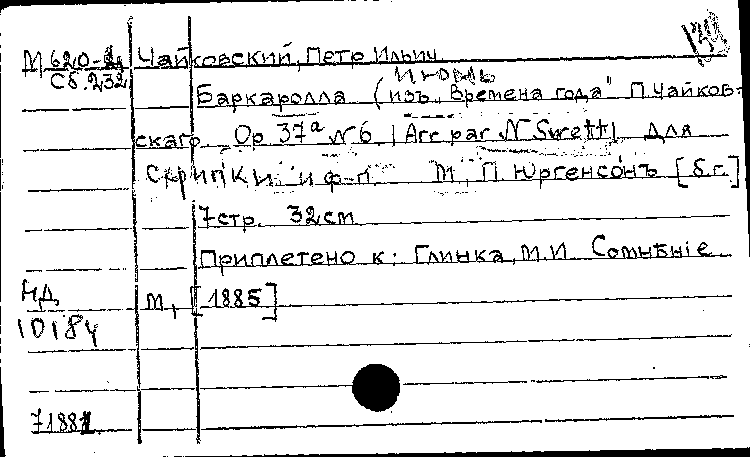 М620-
Сб.232
Чайковский, Петр Ильич
Июнь
Баркаролла (изъ „Времена года" П.Чайков-
скаго Ор 37ª №6 | Arr par N Swett | для
скрипки и ф-п. М, П. Юргенсонъ [б.г.]
7стр. 32см
Приплетено к: Глинка, М.И. Сомнѣніе
М, [1885]
НД
10184
71881